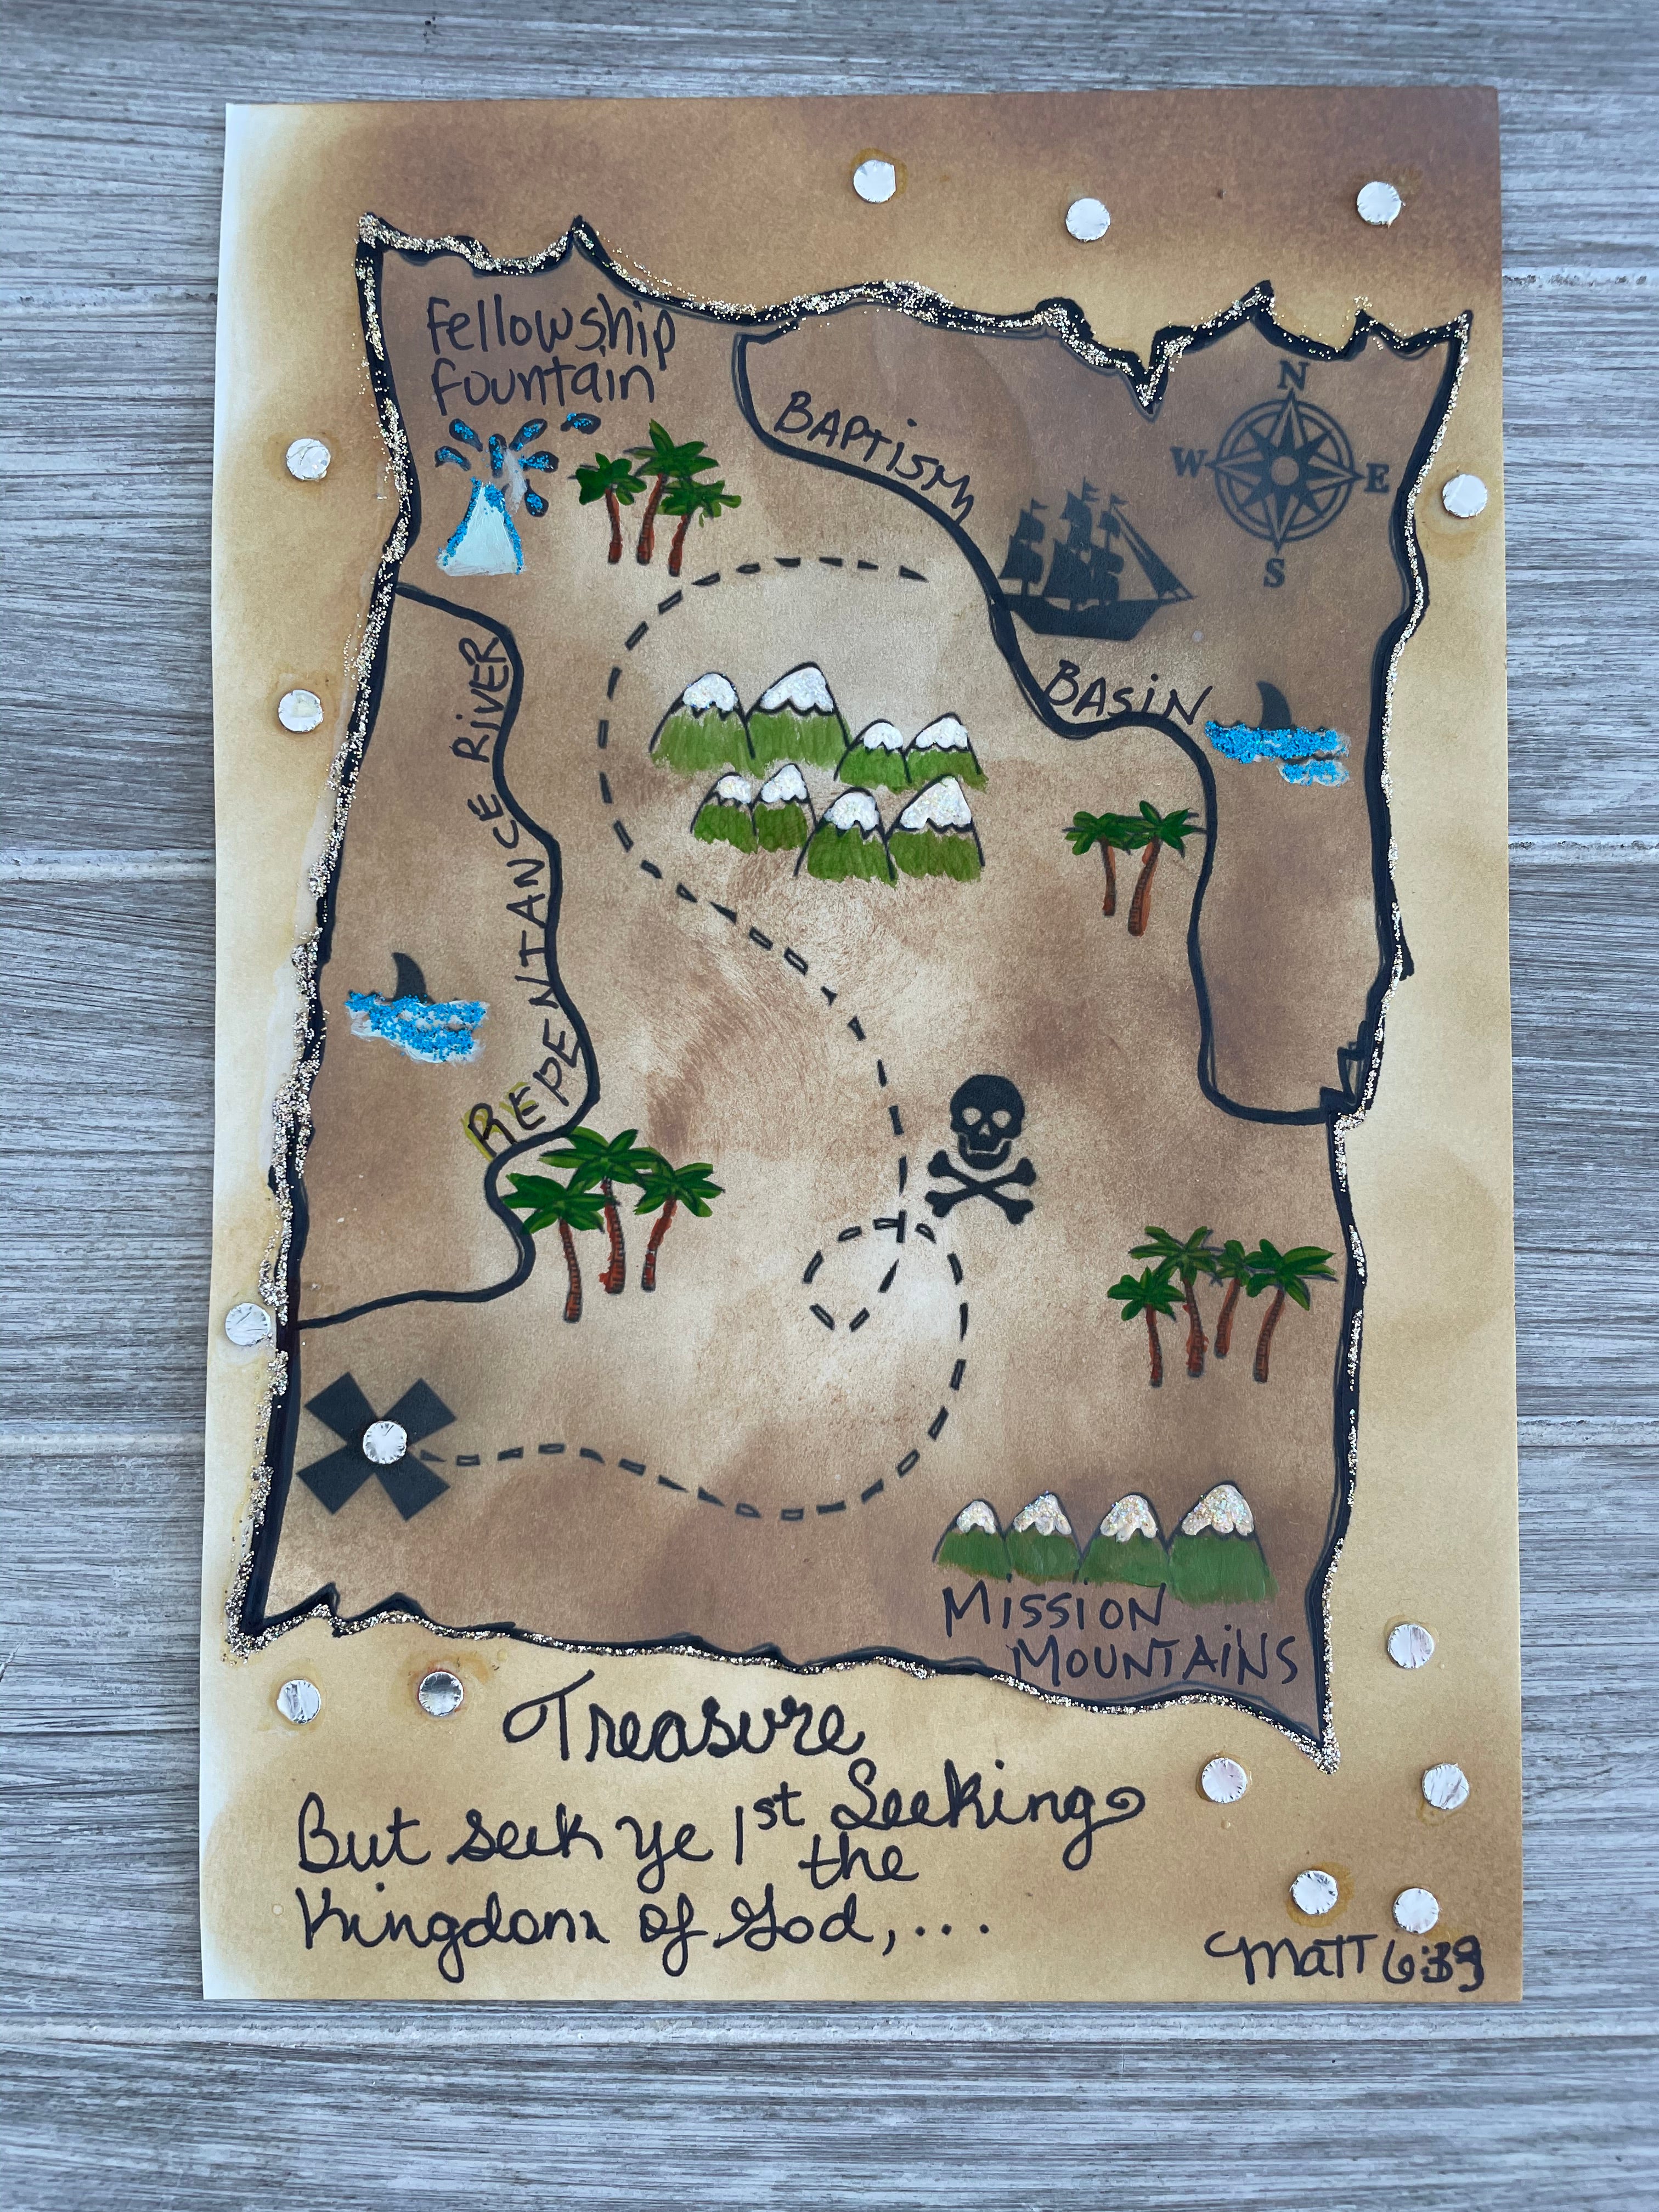 Fellowship
Fountain
BAPTiSM
N
W
E
S
BASiN
REPENTANCE RiVER
MiSSiON
MOUNTAiNS
Treasure
Seeking
But seek ye 1st the
Kingdom of God,...
Matt